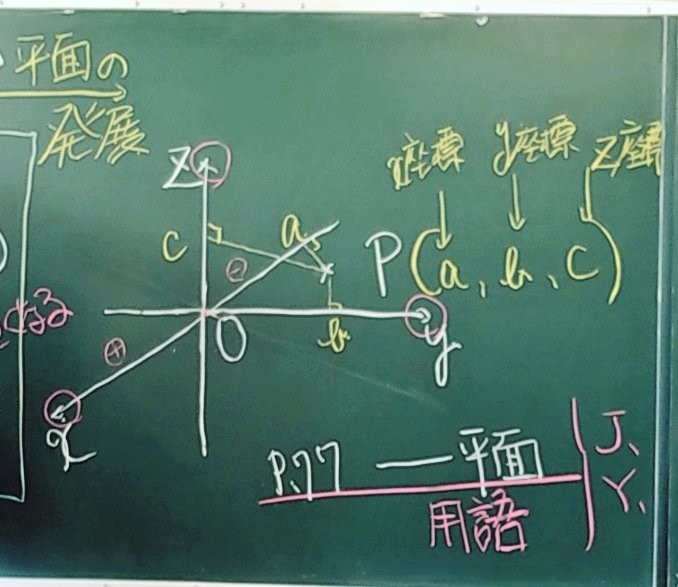 平面の
発展
x座標 y座標 z座標
z
c
a
P(a, b, c)
⊖
O
b
y
⊕
x
P.77 — 平面
用語
J.
Y.